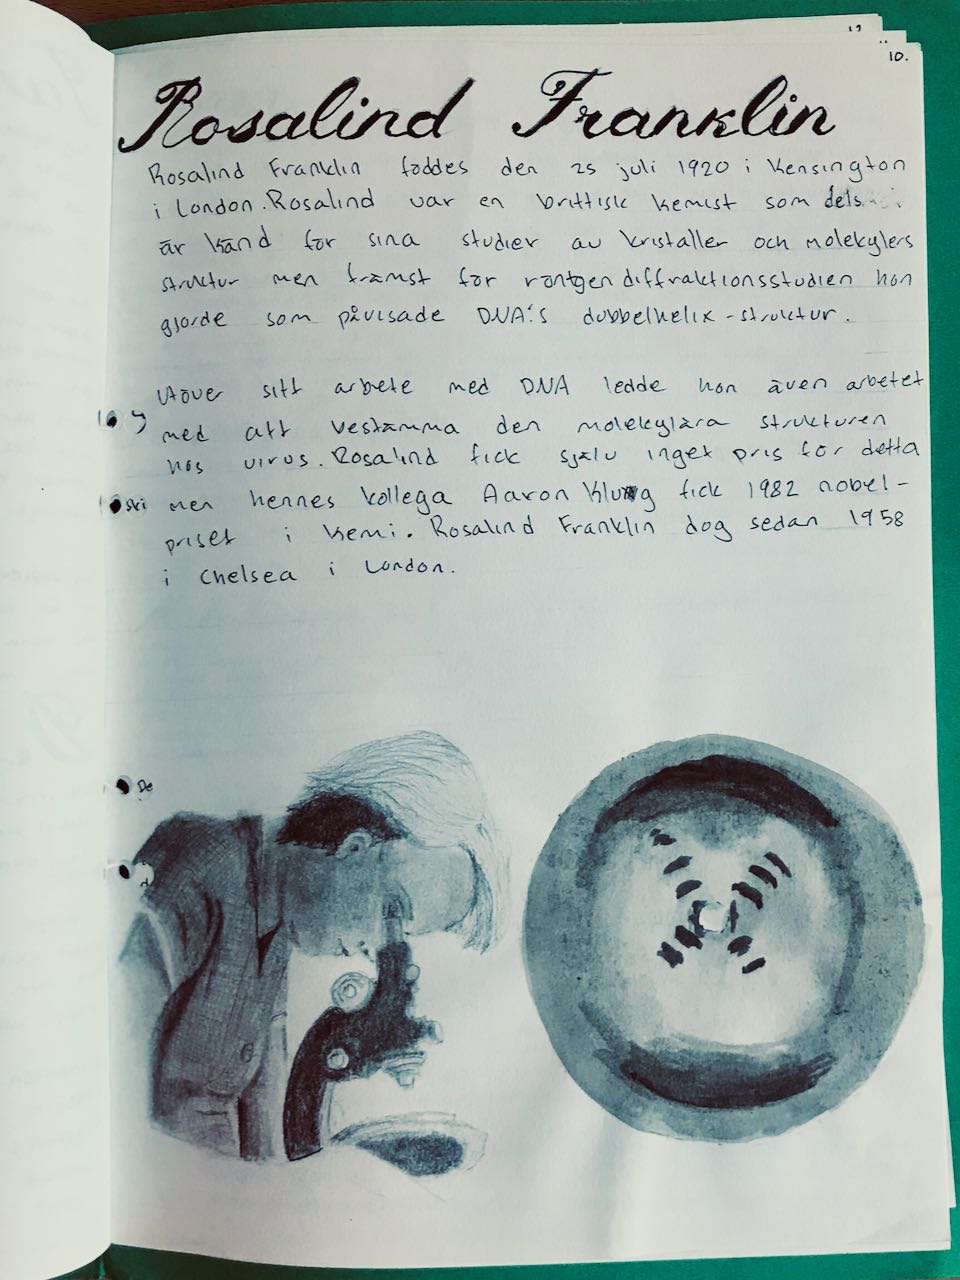 10.
Rosalind Franklin
Rosalind Franklin föddes den 25 juli 1920 i Kensington
i London. Rosalind var en brittisk kemist som dels
är känd för sina studier av kristaller och molekylers
struktur men främst för röntgendiffraktionsstudien hon
gjorde som påvisade DNA:s dubbelhelix-struktur.
Utöver sitt arbete med DNA ledde hon även arbetet
med att bestämma den molekylära strukturen
hos virus. Rosalind fick själv inget pris för detta
men hennes kollega Aaron Klug fick 1982 nobel-
priset i kemi. Rosalind Franklin dog sedan 1958
i Chelsea i London.
De